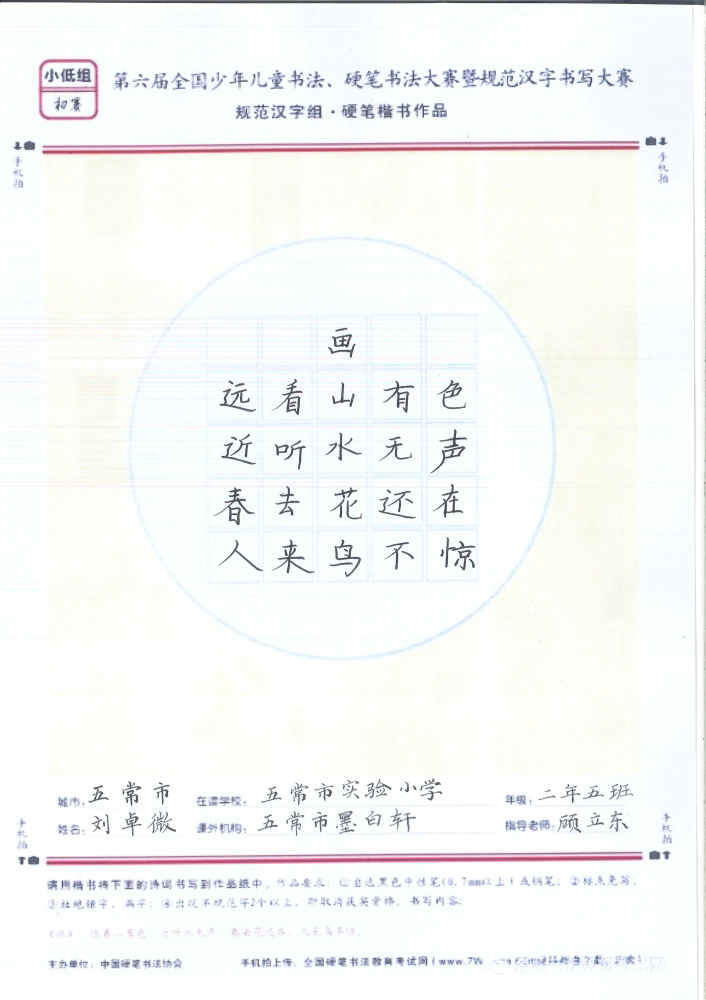 小低组
初赛
第六届全国少年儿童书法、硬笔书法大赛暨规范汉字书写大赛
规范汉字组·硬笔楷书作品
手机拍
手机拍
画
远看山有色
近听水无声
春去花还在
人来鸟不惊
城市：五常市 在读学校：五常市实验小学 年级：二年五班
姓名：刘卓微 课外机构：五常市墨白轩 指导老师：顾立东
手机拍
手机拍
请用楷书将下面的诗词书写到作品纸中。作品要求：①自选黑色中性笔(0.7mm以上)或钢笔；②标点免写；
③杜绝错字、漏字；④出现不规范字2个以上，即取消获奖资格。书写内容：
远看山有色，近听水无声。春去花还在，人来鸟不惊。
主办单位：中国硬笔书法协会 手机拍上传：全国硬笔书法教育考试网(www.7W